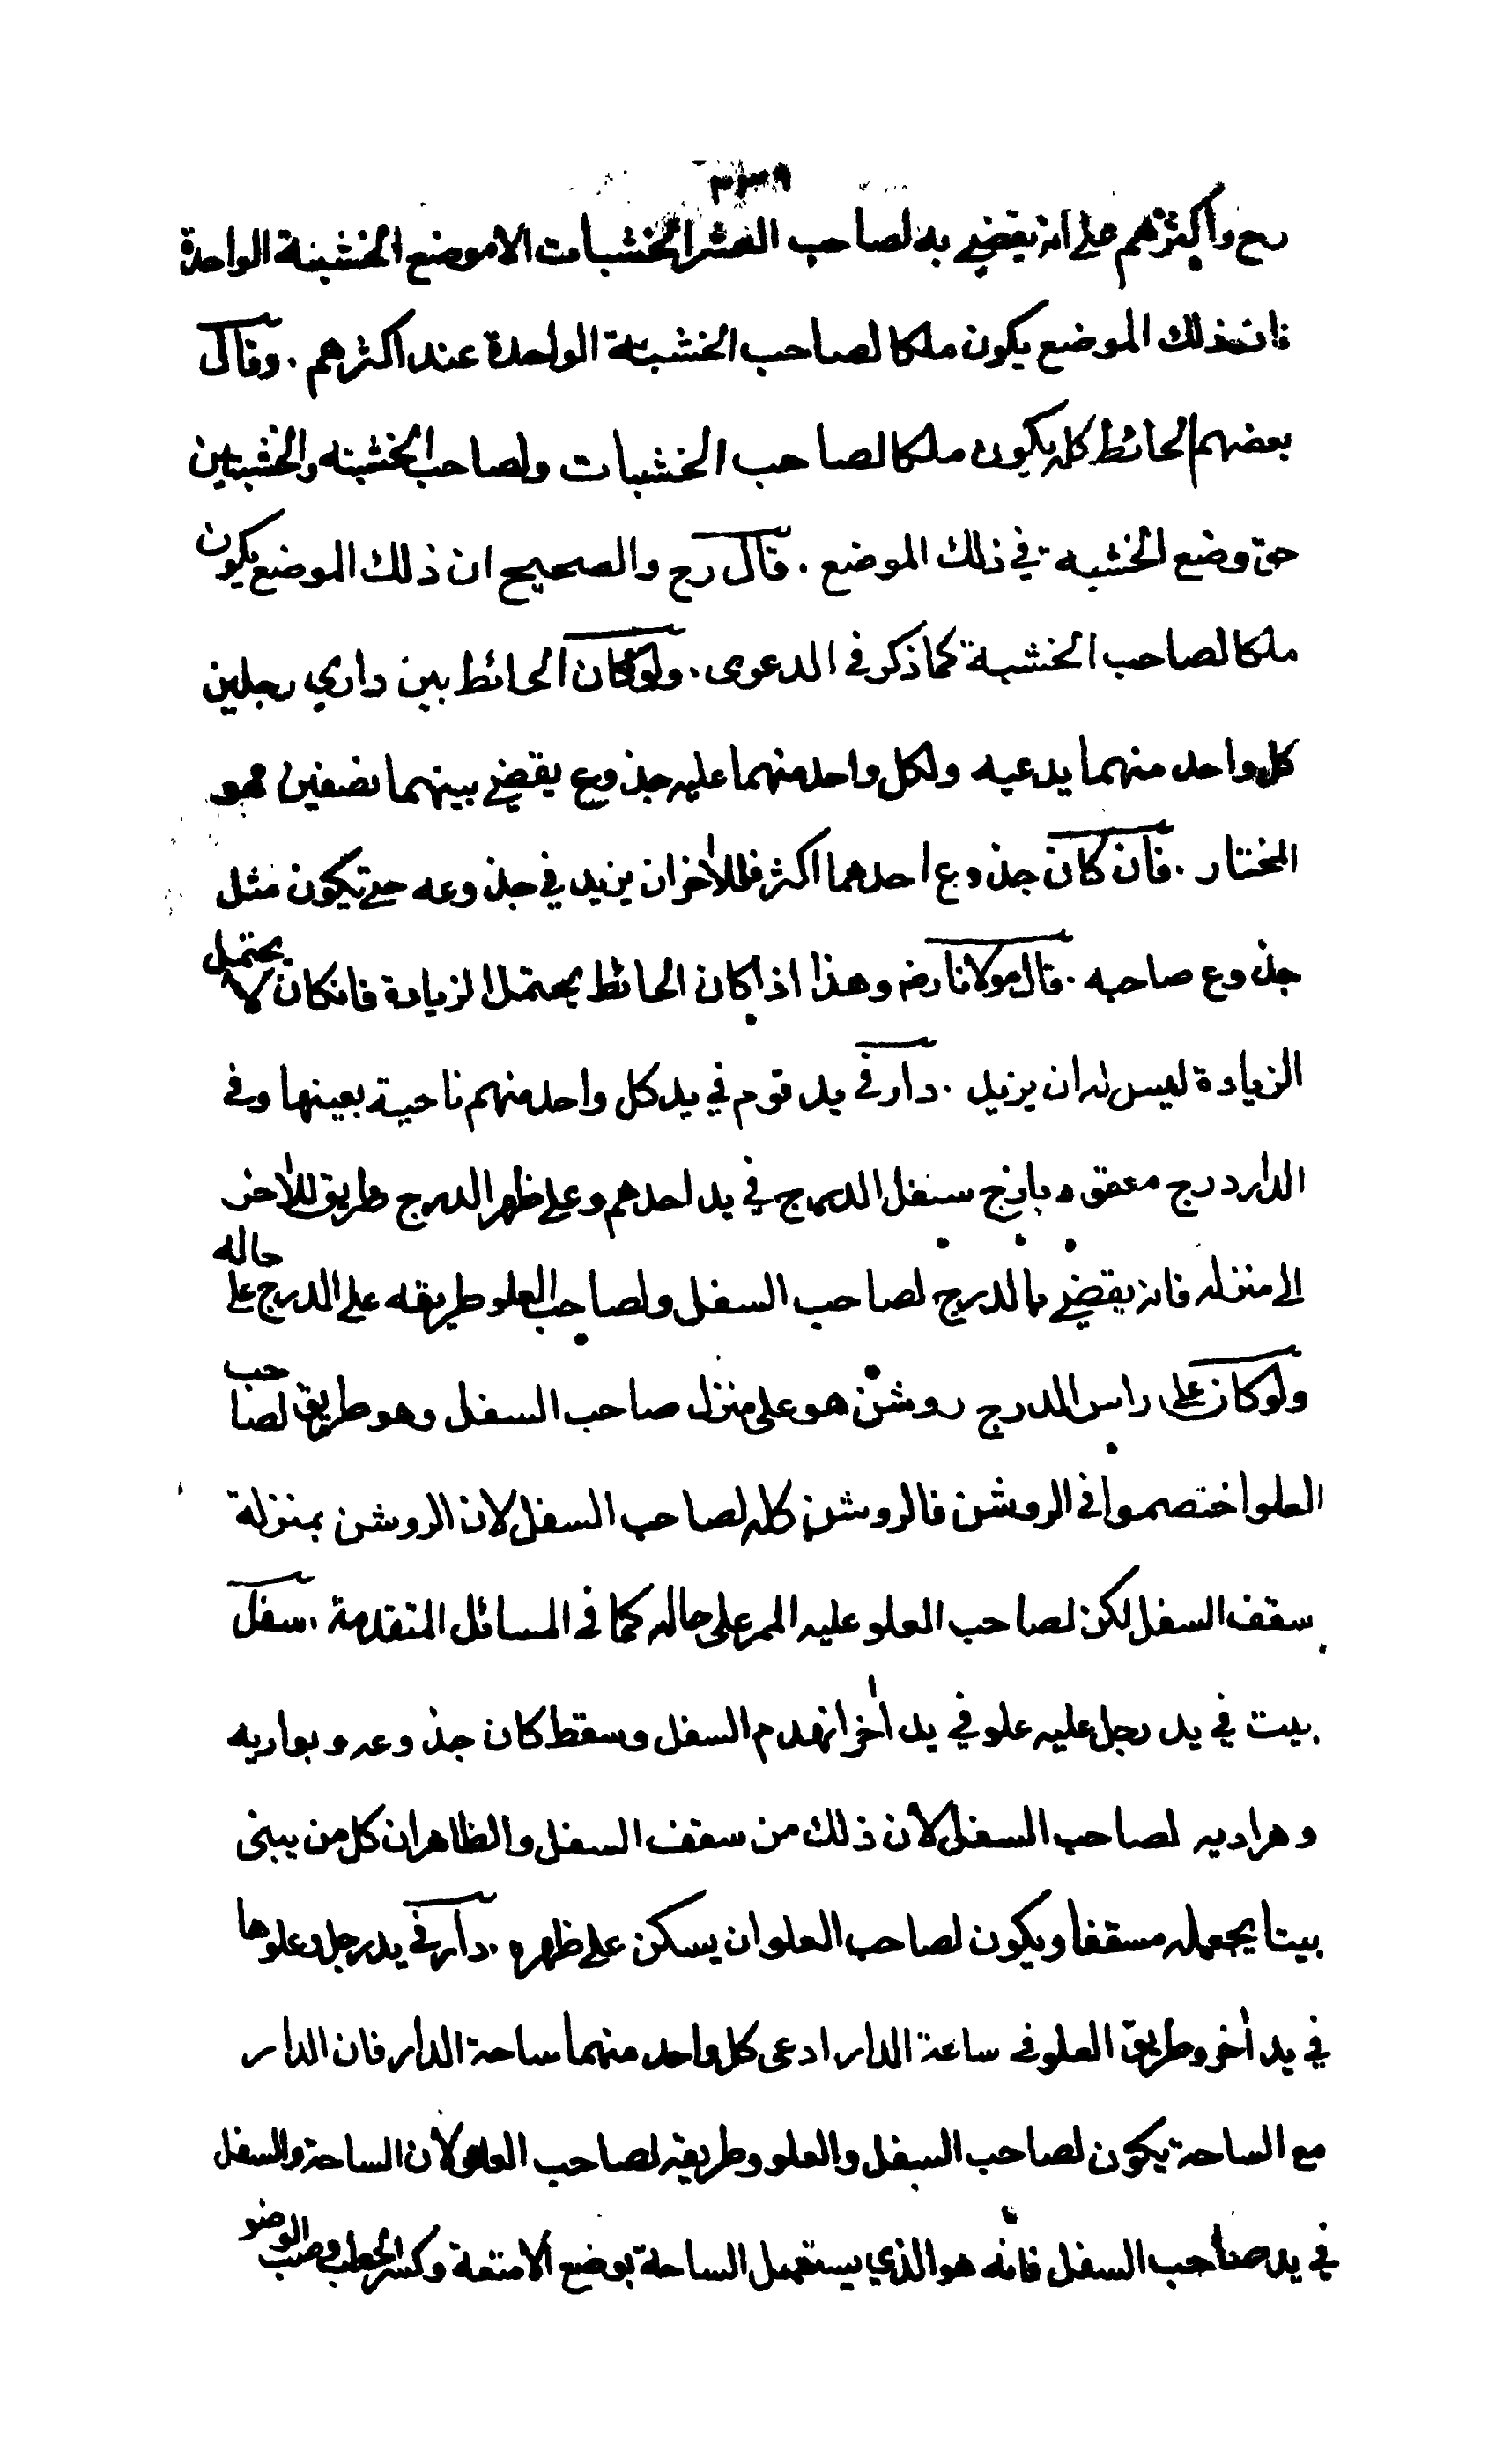 ٣٣٩
رح واكثرهم على انه يقضي به لصاحب العشر الخشبات الا موضع الخشبة الواحدة
فان ذلك الموضع يكون ملكا لصاحب الخشبة الواحدة عند اكثرهم . وقال
بعضهم الحائط كله يكون ملكا لصاحب الخشبات ولصاحب الخشبة والخشبتين
حق وضع الخشبة في ذلك الموضع . قال رح والصحيح ان ذلك الموضع يكون
ملكا لصاحب الخشبة كما ذكر في الدعوى . ولو كان الحائط بين داري رجلين
كل واحد منهما يدعيه ولكل واحد منهما عليه جذوع يقضي بينهما نصفين هو
المختار . فان كان جذوع احدهما اكثر فللآخر ان يزيد في جذوعه حتى تكون مثل
جذوع صاحبه . قال مولانا رضه وهذا اذا كان الحائط يحتمل الزيادة فان كان لا يحتمل
الزيادة ليس له ان يزيد . دار في يد قوم في يد كل واحد منهم ناحية بعينها وفي
الدار درج معقود بازج سفل الدرج في يد احدهم وعلى ظهر الدرج طريق للآخر
الى منزله فانه يقضي بالدرج لصاحب السفل ولصاحب العلو طريقه على الدرج على حاله
ولو كان على راس الدرج روشن هو على منزل صاحب السفل وهو طريق لصاحب
العلو اختصموا في الروشن فالروشن كله لصاحب السفل لان الروشن بمنزلة
سقف السفل لكن لصاحب العلو عليه الممر على حاله كما في المسائل المتقدمة . سفل
بيت في يد رجل عليه علو في يد اٰخر انهدم السفل وسقط كان جذوعه وبواريه
وهراديه لصاحب السفل لان ذلك من سقف السفل والظاهر ان كل من يبنى
بيتا يجعله مسقفا ويكون لصاحب العلو ان يسكن على ظهره . دار في يد رجل وعلوها
في يد اٰخر وطريق العلو في ساحة الدار ادعى كل واحد منهما ساحة الدار فان الدار
مع الساحة يكون لصاحب السفل والعلو وطريقه لصاحب العلو لان الساحة والسفل
في يد صاحب السفل فانه هو الذي يستعمل الساحة بوضع الامتعة وكسر الحطب وصب الوضو